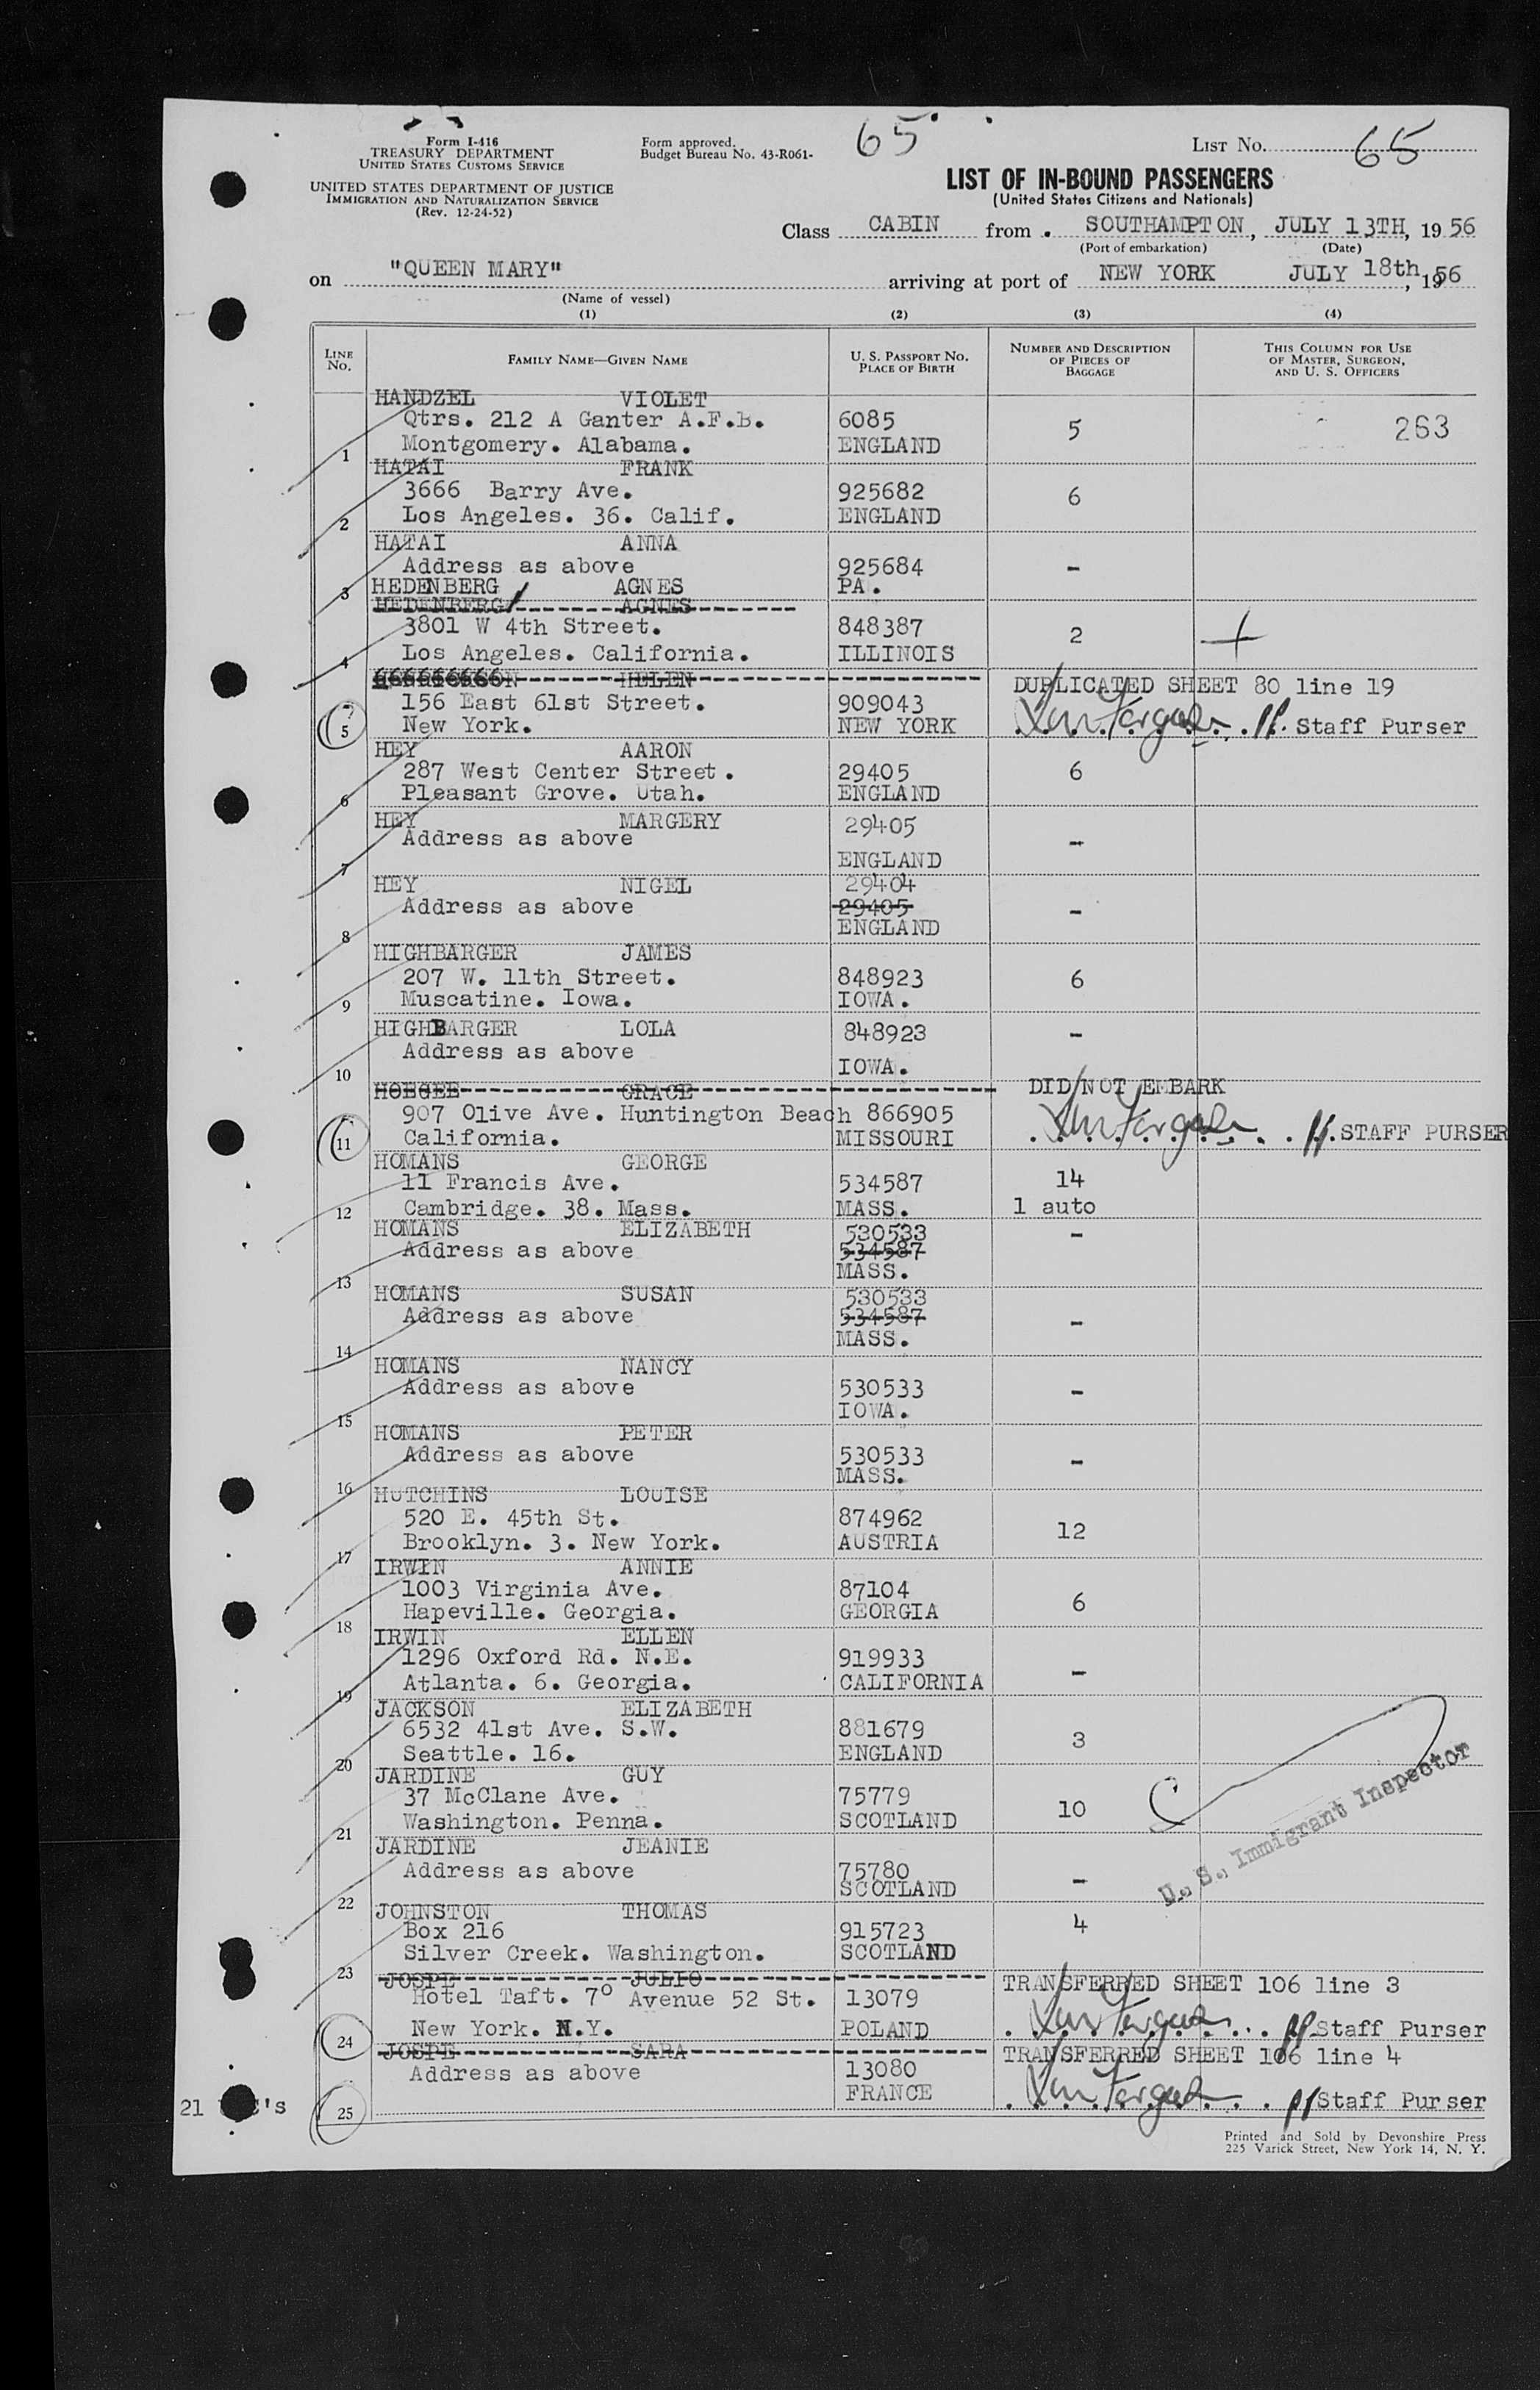 65
Form I-416
TREASURY DEPARTMENT
UNITED STATES CUSTOMS SERVICE
UNITED STATES DEPARTMENT OF JUSTICE
IMMIGRATION AND NATURALIZATION SERVICE
(Rev. 12-24-52)
Form approved.
Budget Bureau No. 43-R061-
LIST NO. 65
LIST OF IN-BOUND PASSENGERS
(United States Citizens and Nationals)
Class CABIN from SOUTHAMPTON, JULY 13TH, 1956
(Port of embarkation) (Date)
on "QUEEN MARY" arriving at port of NEW YORK JULY 18th, 1956
(Name of vessel)
(1) (2) (3) (4)
LINE NO. FAMILY NAME—GIVEN NAME U. S. PASSPORT NO. PLACE OF BIRTH NUMBER AND DESCRIPTION OF PIECES OF BAGGAGE THIS COLUMN FOR USE OF MASTER, SURGEON, AND U. S. OFFICERS
HANDZEL VIOLET
Qtrs. 212 A Ganter A.F.B. 6085 5 263
1 Montgomery. Alabama. ENGLAND
HATAI FRANK
3666 Barry Ave. 925682 6
2 Los Angeles. 36. Calif. ENGLAND
HATAI ANNA
Address as above 925684 -
3 HEDENBERG AGNES PA.
HEDENBERG AGNES
3801 W 4th Street. 848387 2
4 Los Angeles. California. ILLINOIS
HELEN DUPLICATED SHEET 80 line 19
156 East 61st Street. 909043
5 New York. NEW YORK Staff Purser
HEY AARON
287 West Center Street. 29405 6
6 Pleasant Grove. Utah. ENGLAND
HEY MARGERY 29405
Address as above -
7 ENGLAND
HEY NIGEL 29404
Address as above 29405 -
8 ENGLAND
HIGHBARGER JAMES
207 W. 11th Street. 848923 6
9 Muscatine. Iowa. IOWA.
HIGHBARGER LOLA 848923 -
Address as above
10 IOWA.
GRACE DID NOT EMBARK
907 Olive Ave. Huntington Beach 866905
11 California. MISSOURI STAFF PURSER
HOMANS GEORGE
11 Francis Ave. 534587 14
12 Cambridge. 38. Mass. MASS. 1 auto
HOMANS ELIZABETH 530533 -
Address as above 534587
13 MASS.
HOMANS SUSAN 530533
Address as above 534587 -
14 MASS.
HOMANS NANCY
Address as above 530533 -
15 IOWA.
HOMANS PETER
Address as above 530533 -
16 MASS.
HUTCHINS LOUISE
520 E. 45th St. 874962 12
17 Brooklyn. 3. New York. AUSTRIA
IRWIN ANNIE
1003 Virginia Ave. 87104 6
18 Hapeville. Georgia. GEORGIA
IRWIN ELLEN
1296 Oxford Rd. N.E. 919933 -
19 Atlanta. 6. Georgia. CALIFORNIA
JACKSON ELIZABETH
6532 41st Ave. S.W. 881679 3
20 Seattle. 16. ENGLAND
JARDINE GUY
37 McClane Ave. 75779 10
21 Washington. Penna. SCOTLAND
JARDINE JEANIE
Address as above 75780 -
22 SCOTLAND
U. S. Immigrant Inspector
JOHNSTON THOMAS
Box 216 915723 4
23 Silver Creek. Washington. SCOTLAND
JOSPE JULIO TRANSFERRED SHEET 106 line 3
Hotel Taft. 7º Avenue 52 St. 13079
24 New York. N.Y. POLAND Staff Purser
JOSPE SARA TRANSFERRED SHEET 106 line 4
Address as above 13080
25 FRANCE Staff Purser
21
Printed and Sold by Devonshire Press
225 Varick Street, New York 14, N. Y.